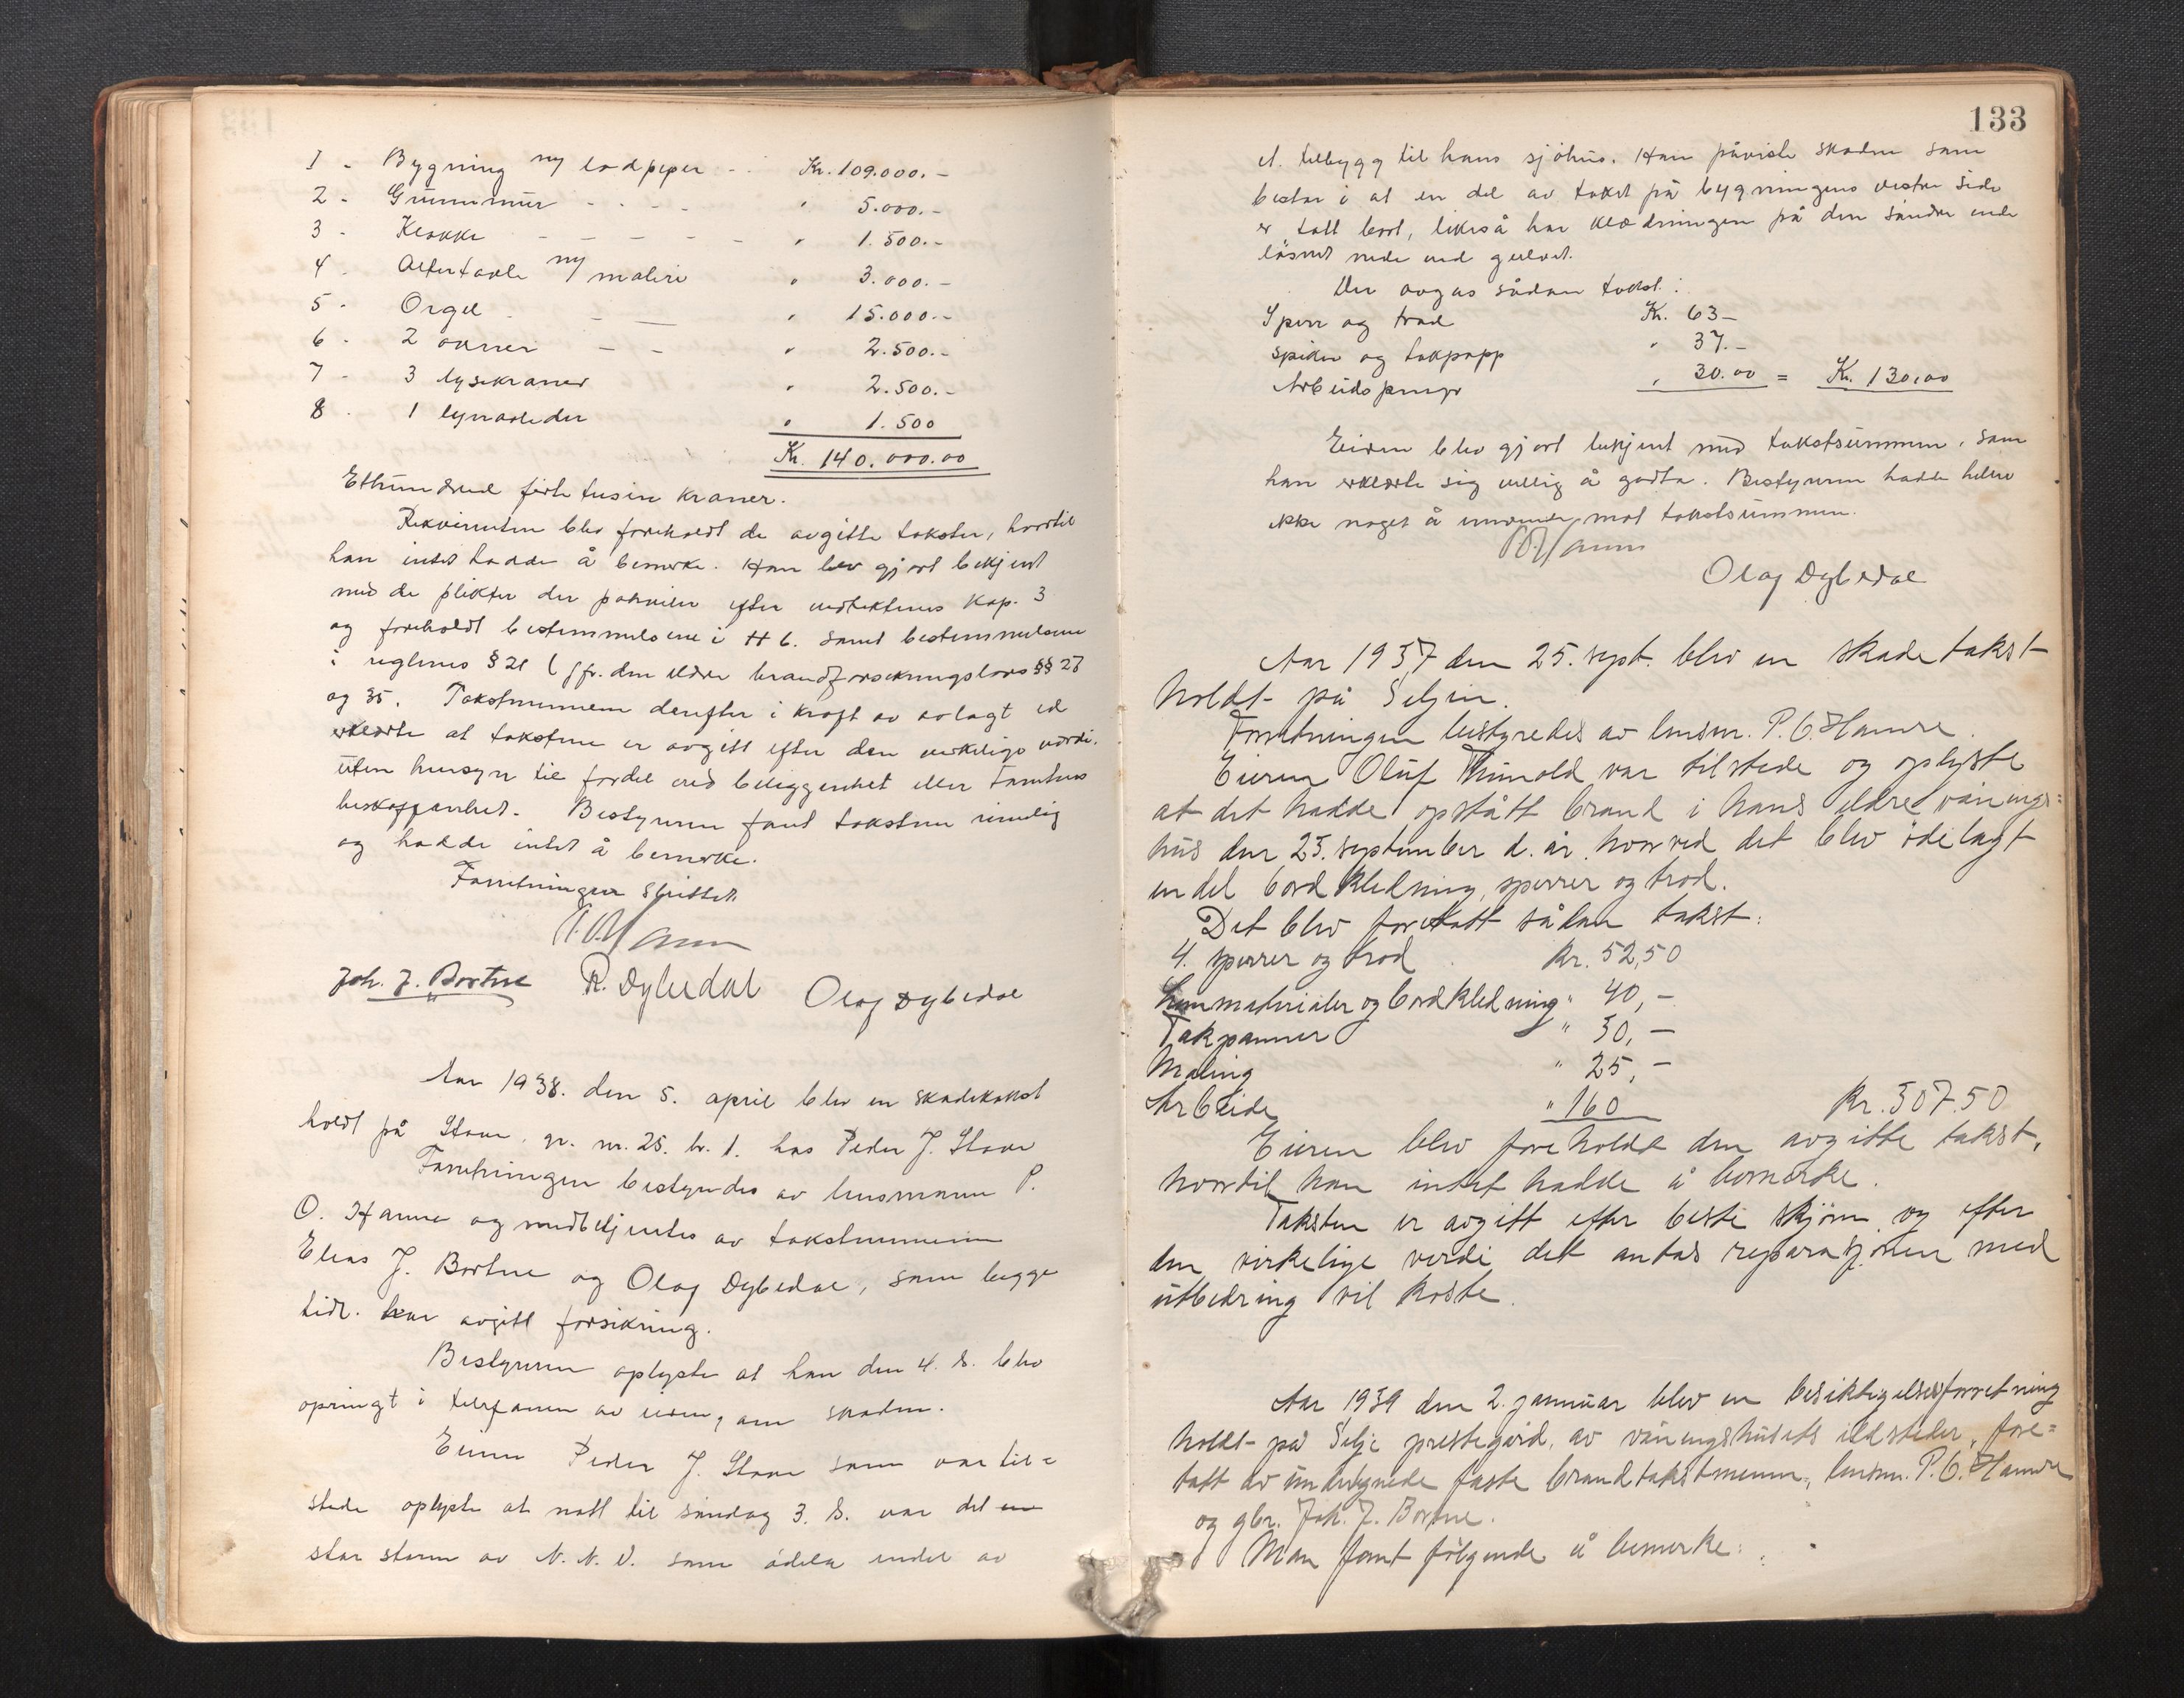 1 - Bygning m/ lodpiper - - Kr. 109.000.-
2 - Grunnmur - - - - " 5.000.-
3 - Klokke - - - - - - " 1.500.-
4 - Altertavle m/ maleri " 3.000.-
5 - Orgel - - — " 15.000.-
6 - 2 ovner - - " 2.500.-
7 - 3 lysekroner " 2.500.-
8 - 1 lynavleder " 1.500
Kr. 140.000.00
Ethundred førti tusin kroner.
Rekvirenten blev foreholdt de avgitte takster, hvortil
han intet hadde å bemerke. Han blev gjort bekjent
med de plikter der påhviler efter vedtektenes kap. 3
og foreholdt bestemmelsene i H 6. samt bestemmelsene
i reglenes § 21 (jfr. den eldre brandforsikringslovs §§ 27
og 35. Takstmennene derefter i kraft av avlagt ed
erklærte at takstene er avgitt efter den virkelige verdi.
uten hensyn til fordel ved beliggenhet eller tomtens
beskaffenhet. Bestyreren fant taksten rimelig
og hadde intet å bemerke.
Forretningen sluttet
P.O. Hamre
Joh. J. Bortne R. Dybedal Olag Dybedal
Aar 1938. den 5. april blev en skadetakst
holdt på Stave, gr. nr. 25. br. 1. hos Peder J. Stave
Forretningen bestyredes av lensmann P.
O. Hamre og medbetjentes av takstmennene
Elias J. Bortne og Olag Dybedal, som begge
tidl. har avgitt forsikring.
Bestyreren oplyste at han den 4. ds. blev
opringt i telefonen av eieren, om skaden.
Eieren Peder J. Stave som var til=
stede oplyste at natt til søndag 3. ds. var det en
stor storm av N. N. V. som ødela endel av
133
et tilbygg til hans sjøhus. Han påviste skaden som
består i at en del av taket på bygningens vestre side
er tatt bort, likeså har klædningen på den søndre ende
løsnet nede ved gulvet.
Der avgas sådan takst:
Sperr og trod Kr. 63-
spiker og takpapp " 37.-
Arbeidspenger " 30.00 = Kr. 130,00
Eieren blev gjort bekjent med takstsummen, som
han erklærte sig villig å godta. Bestyreren hadde heller
ikke noget å innvende mot takstsummen.
P.O. Hamre
Olag Dybedal
Aar 1937 den 25. sept. blev en skadetakst
holdt på Seljen.
Forretningen bestyredes av lensm. P. O. Hamre.
Eieren Oluf Thunold var tilstede og oplyste
at det hadde opstått brand i hans eldre vånings=
hus den 23. september d. år. hvorved det blev ødelagt
en del bordkledning, sperrer og trod.
Det blev foretatt sådan takst:
4. sperrer og trod Kr. 52,50
materialer og bordkledning " 40,-
Takpanner " 30,-
Maling " 25,-
Arbeide " 160 Kr. 307.50
Eieren blev foreholdt den avgitte takst,
hvortil han intet hadde å bemerke.
Taksten er avgitt efter beste skjønn og efter
den virkelige verdi det antas reparasjonen med
utbedring vil koste.
Aar 1939 den 2. januar blev en besiktigelsesforretning
holdt på Selje prestegård, av våningshusets ildsteder, fore=
tatt av undertegnede faste brandtakstmenn, lensm. P. O. Hamre
og gbr. Joh. J. Bortne.
Man fant følgende å bemerke: